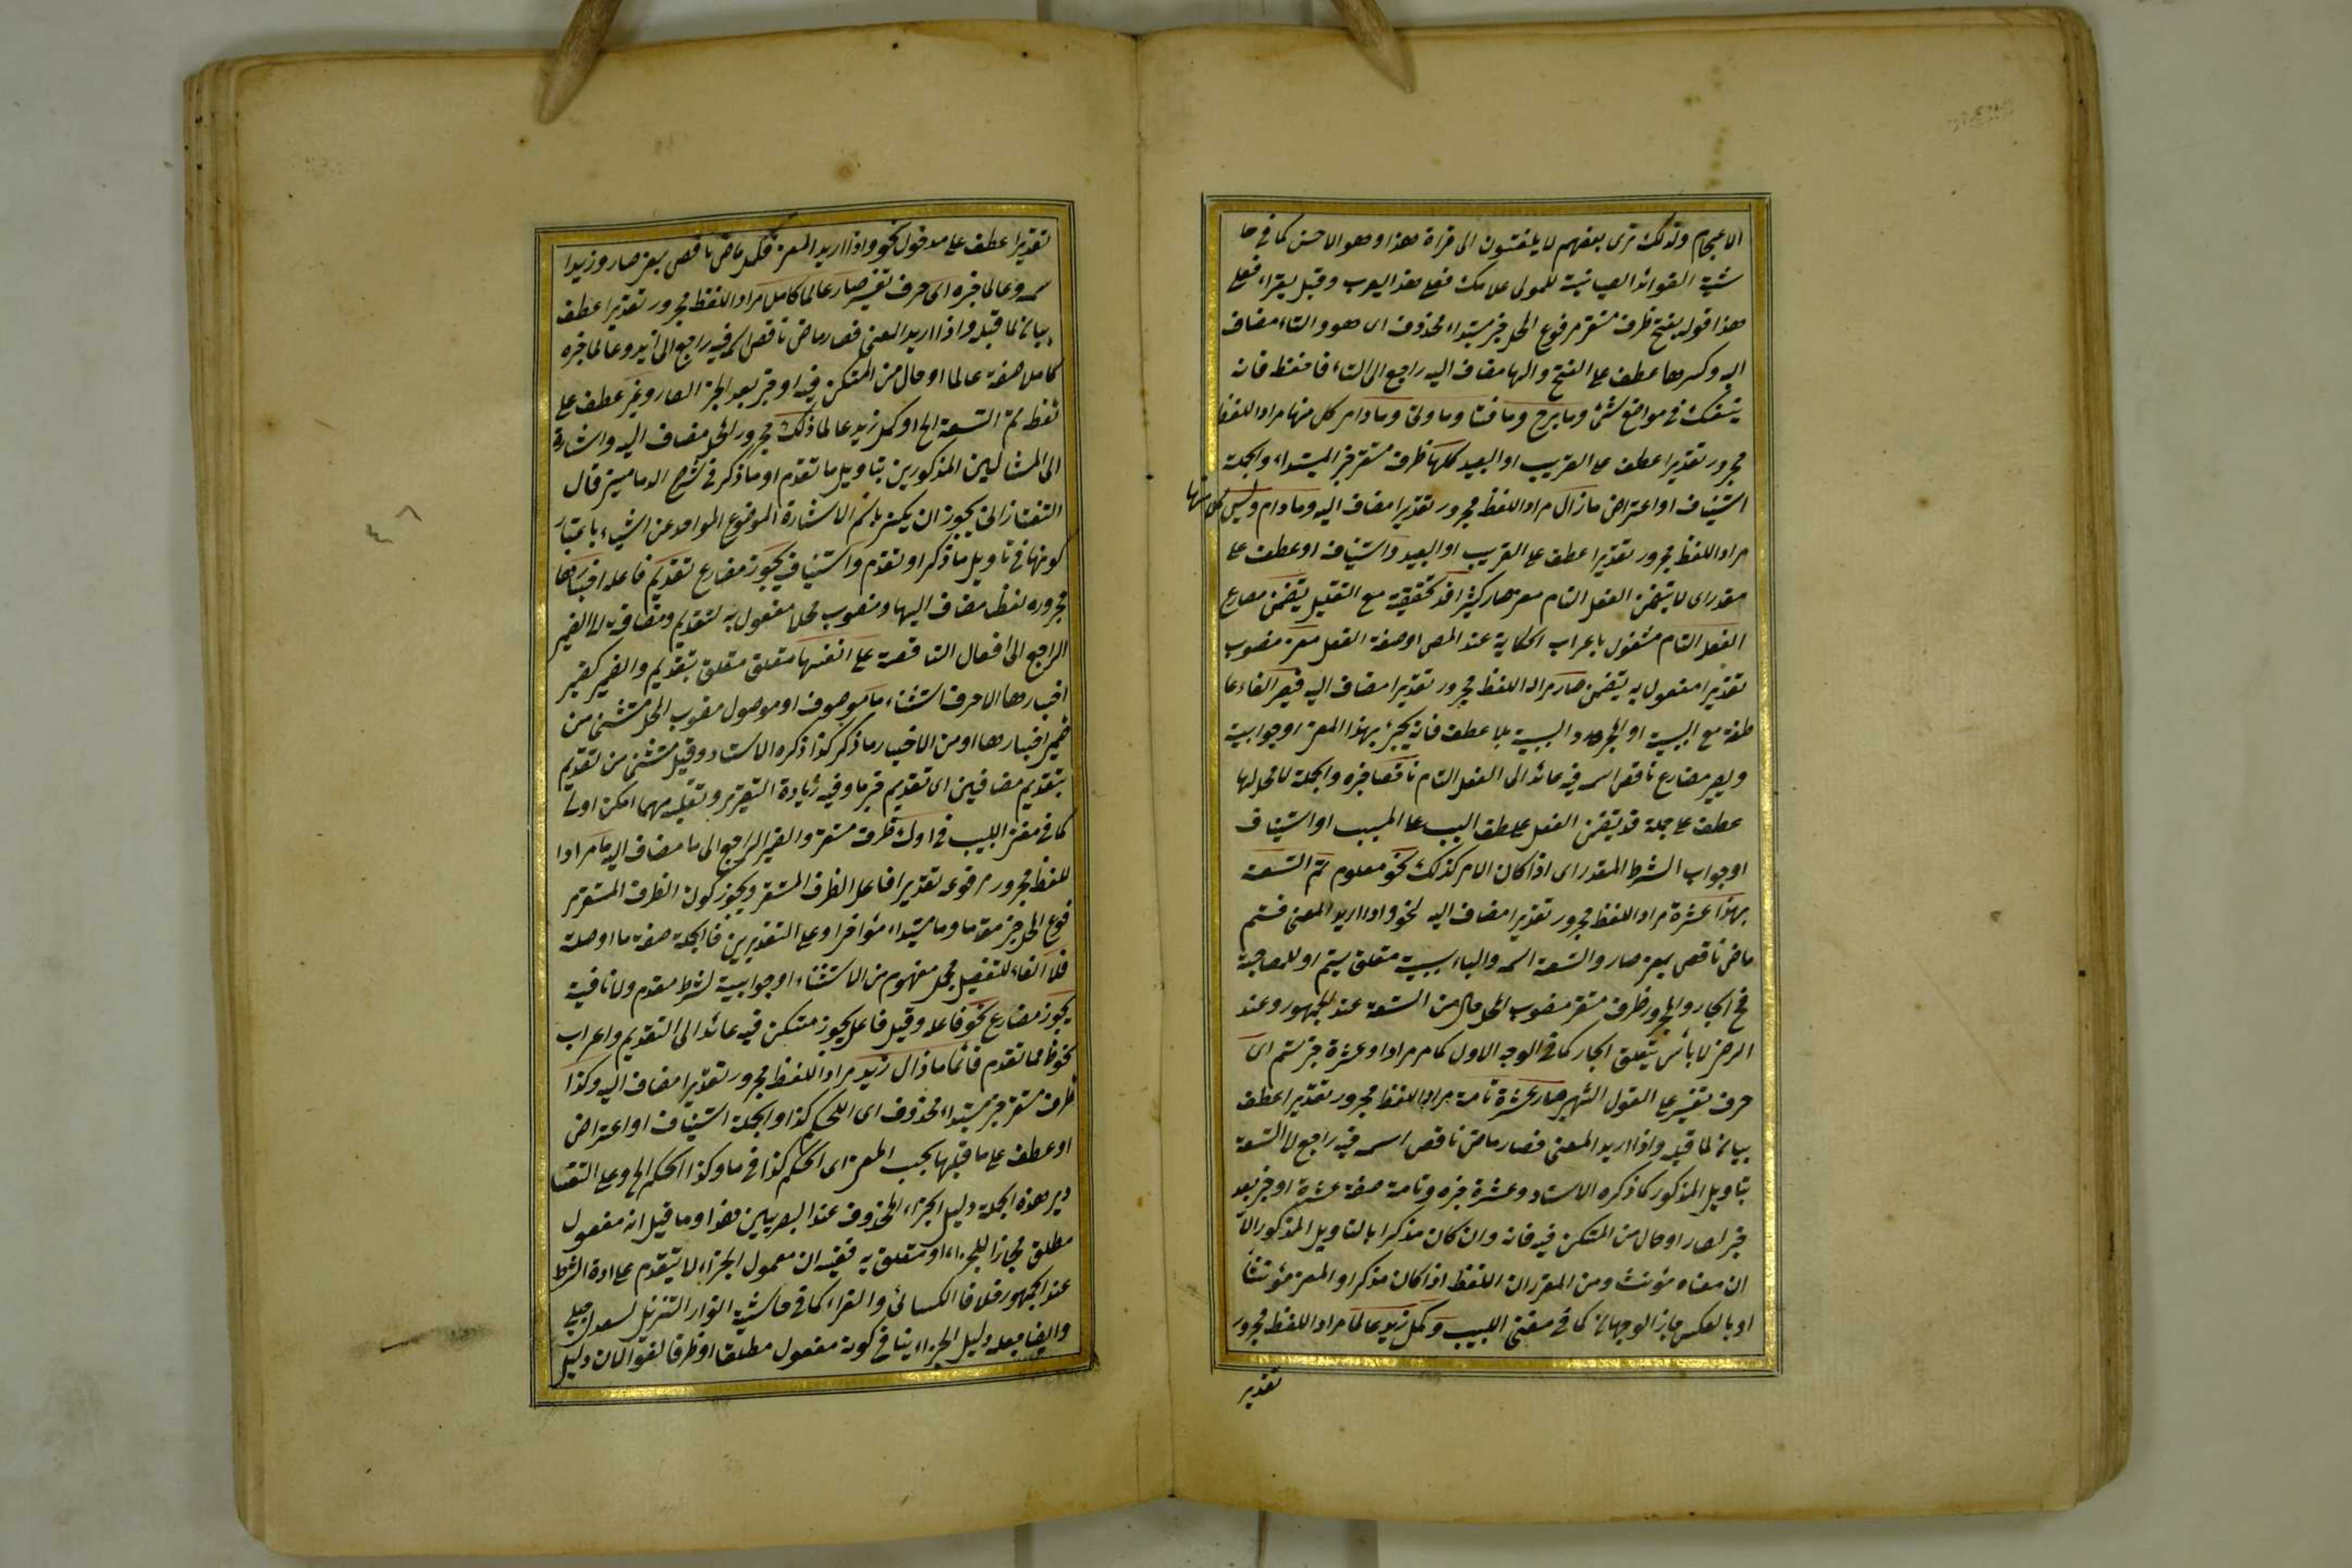 الاعجام ولذلك ترى بعضهم لا يلتفتون الى قراءة هذا وهو الاحسن كما فى حا
شية الفوائد الضيائية للمولى علامك فعلى هذا يعرب وقيل يقراء فعلى
هذا قوله بفتح ظرف مستقر مرفوع المحل خبر مبتداء محذوف اى هو والتاء مضاف
اليه وكسرها عطف على الفتح والها مضاف اليه راجع الى التاء فاحفظ فانه
ينفعك فى مواضع شتى وما برح وما فتا وما ونى وما دام كل منها مراد اللفظ
مجرور تقديرا عطف على القريب او البعيد كلها ظرف مستقر خبر المبتداء والجملة
استيناف او اعتراض ما زال مراد اللفظ مجرور تقديرا مضاف اليه وما دام وليس كل منها
مراد اللفظ مجرور تقديرا عطف على القريب او البعيد واستيناف او عطف على
مقدر اى لا يتضمن الفعل التام معنى صار كثيرا قد تحقيقية مع التقليل يتضمن مضارع
الفعل التام مشغول باعراب الحكاية عند المص او صفة الفعل معنى منصوب
تقديرا مفعول به يتضمن صار مراد اللفظ مجرور تقديرا مضاف اليه فيصير الفاء عا
طفة مع السببية او لمجرد السببية بلا عطف فانه يجئ بهذا المعنى او جوابية
ويصير مضارع ناقص اسمه فيه عائد الى الفعل التام ناقصا خبره والجملة لا محل لها
عطف على جملة قد يتضمن الفعل عطف السبب على المسبب او استيناف
او جواب الشرط المقدر اى اذا كان الامر كذلك نحو معلوم تم التسعة
بهذا عشرة مراد اللفظ مجرور تقديرا مضاف اليه لنحو واذا اريد المعنى فتم
ماض ناقص بمعنى صار والتسعة اسمه والباء سببية متعلق بتم او للمصاحبة
فح الجار والمجرور ظرف مستقر منصوب المحل حال من التسعة عند الجمهور وعند
الرضى لا بأس بتعلق الجار كما فى الوجه الاول كما مر مرادا وعشرة خبر تم اى
حرف تفسير على القول الشهير صار عشرة تامة مراد اللفظ مجرور تقديرا عطف
بيان لما قبله واذا اريد المعنى فصار ماض ناقص اسمه فيه راجع الى التسعة
بتاويل المذكور كما ذكره الاستاد وعشرة خبره وتامة صفة عشرة او خبر بعد
خبر لصار او حال من المتمكن فيه فانه وان كان مذكرا بالتاويل المذكور الا
ان معناه مؤنث ومن المقرر ان اللفظ اذا كان مذكرا والمعنى مؤنثا
او بالعكس جاز الوجهان كما فى مغنى اللبيب وكمل زيد عالما مراد اللفظ مجرور
تقدير
تقديرا عطف على مدخول نحو واذا اريد المعنى فكمل ماض ناقص بمعنى صار وزيدا
سمه وعالما خبره اى حرف تفسير صار عالما كاملا مراد اللفظ مجرور تقديرا عطف
بيان لما قبله واذا اريد المعنى فصار ماض ناقص اسمه فيه راجع الى زيد وعالما خبره
كاملا صفة عالما او حال من المتمكن فيه او خبر بعد الخبر لصار وغير عطف على
لفظ تم التسعة الخ او كمل زيد عالما ذلك مجرور المحل مضاف اليه واشارة
الى المثالين المذكورين بتاويل ما تقدم او ما ذكر فى شرح الدمامينى قال
التفتازانى يجوز ان يكنى باسم الاشارة الموضوع للواحد عن اشياء باعتبار
كونها فى تاويل ما ذكر او تقدم واستيناف يجوز مضارع تقديم فاعله اخبارها
مجروره لفظا مضاف اليها ومنصوب محلا مفعول به لتقديم ومضاف الى الضمير
الراجع الى افعال الناقصة على انفسها متعلق متعلق بتقديم والضمير كضمير
اخبارها الا حرف استثناء ما موصوف او موصول منصوب المحل مستثنى من
ضمير اخبارها او من الاخبار ما ذكر كذا ذكره الاستاد وقيل مستثنى من تقديم
بتقديم مضافين اى تقديم خبر ما وفيه زيادة التقدير وتقليله مهما امكن اولى
كما فى مغنى اللبيب فى اوله ظرف مستقر والضمير الراجع الى ما مضاف اليه ما مرادا
للفظ مجرور مرفوعه تقديرا فاعل الظرف المستقر ويجوز كون الظرف المستقر مر
فوع المحل خبر مقدما وما مبتداء مؤخرا وعلى التقديرين فالجملة صفة ما او صلة
فلا الفاء للتفصيل مجمل مفهوم من الاستثناء او جوابية لشرط مقدم ولا نافية
يجوز مضارع نحو فاعله وقيل فاعل يجوز متمكن فيه عائد الى التقديم واعراب
نحو ظ مما تقدم قائما ما زال زيد مراد اللفظ مجرور تقديرا مضاف اليه وكذا
ظرف مستقر خبر مبتداء محذوف اى الحكم كذا والجملة استيناف او اعتراض
او عطف على ما قبلها بحسب المعنى اى الحكم كذا فى ما وكذا الحكم الخ وعلى التقا
دير هذه الجملة دليل الجزاء المحذوف عند البصريين هذا وما قيل انه مفعول
مطلق مجازا للجزاء او متعلق به ففيه ان معمول الجزاء لا يتقدم على اداة الشرط
عند الجمهور خلافا للكسائى والفراء كما فى حاشية انوار التنزيل لسعدى چلبى
وايضا جعله دليل الجزاء ينافى كونه مفعولا مطلقا او ظرفا لغوا لان دليل